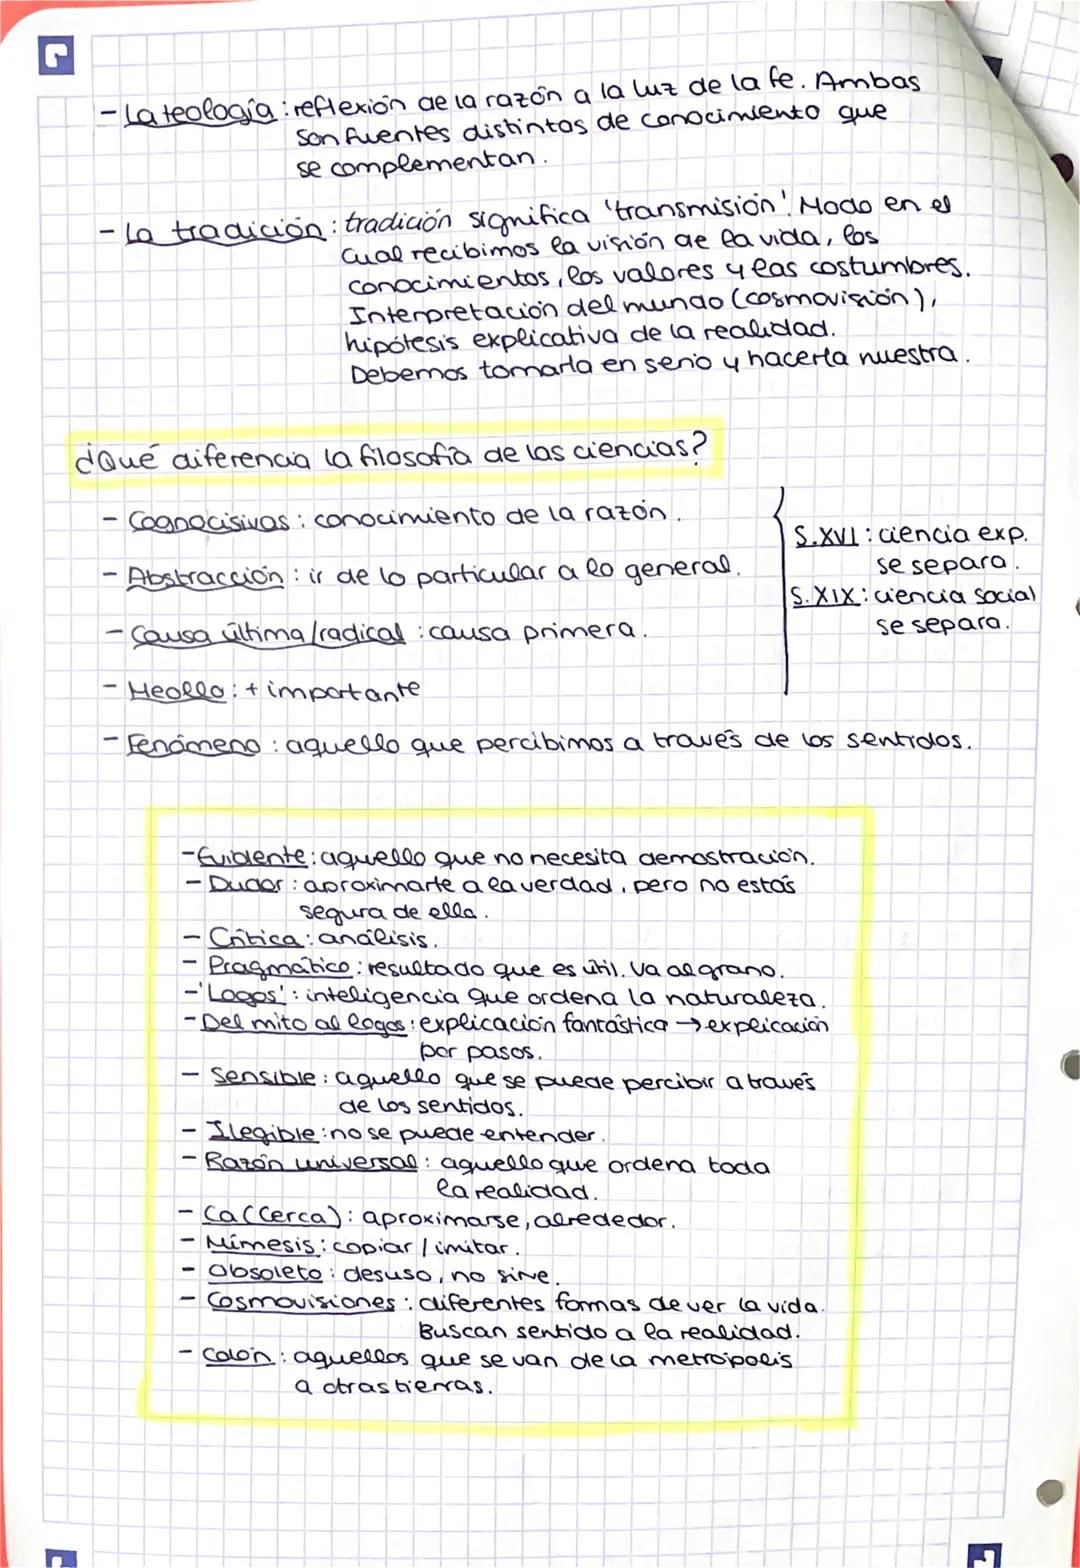 - La teología: reflexión de la razón a la luz de la fe. Ambas
son fuentes distintas de conocimiento que
se complementan.
- La tradición: tradición significa 'transmisión'. Modo en el
cual recibimos la visión de la vida, los
conocimientos, los valores y las costumbres.
Interpretación del mundo (cosmovisión),
hipótesis explicativa de la realidad.
Debemos tomarla en serio y hacerla nuestra.
¿Qué diferencia la filosofía de las ciencias?
- Cognocisivas: conocimiento de la razón.
- Abstracción: ir de lo particular a lo general.
- Causa última/radical: causa primera.
- Meollo: + importante
- Fenómeno: aquello que percibimos a través de los sentidos.
S.XVI: ciencia exp.
se separa.
S.XIX: ciencia social
se separa.
- Evidente: aquello que no necesita demostración.
- Dudar: aproximarte a la verdad, pero no estás
segura de ella.
- Crítica: análisis.
- Pragmático: resultado que es útil. Va al grano.
- 'Logos': inteligencia que ordena la naturaleza.
- Del mito al logos: explicación fantástica → explicación
por pasos.
- Sensible: aquello que se puede percibir a través
de los sentidos.
- Ilegible: no se puede entender.
- Razón universal: aquello que ordena toda
la realidad.
- Ca (Cerca): aproximarse, alrededor.
- Mímesis: copiar / imitar.
- Obsoleto: desuso, no sirve.
- Cosmovisiones: diferentes formas de ver la vida.
Buscan sentido a la realidad.
- Colón: aquellos que se van de la metrópolis
a otras tierras.